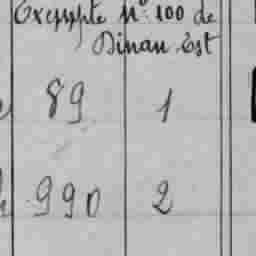 Exempte N° 100 de
Dinan Est
89 1
990 2